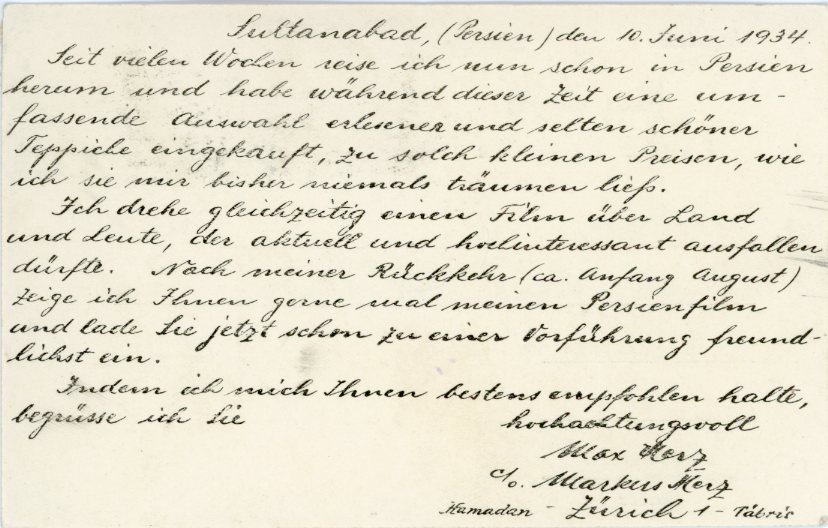 Sultanabad, (Persien) den 10. Juni 1934.
Seit vielen Wochen reise ich nun schon in Persien
herum und habe während dieser Zeit eine um-
fassende Auswahl erlesener und selten schöner
Teppiche eingekauft, zu solch kleinen Preisen, wie
ich sie mir bisher niemals träumen ließ.
Ich drehe gleichzeitig einen Film über Land
und Leute, der aktuell und hochinteressant ausfallen
dürfte. Nach meiner Rückkehr (ca. Anfang August)
zeige ich Ihnen gerne mal meinen Persienfilm
und lade Sie jetzt schon zu einer Vorführung freund-
lichst ein.
Indem ich mich Ihnen bestens empfohlen halte,
begrüsse ich Sie hochachtungsvoll
Max Merz
c/o. Markus Merz
Hamadan - Zürich 1 - Täbris